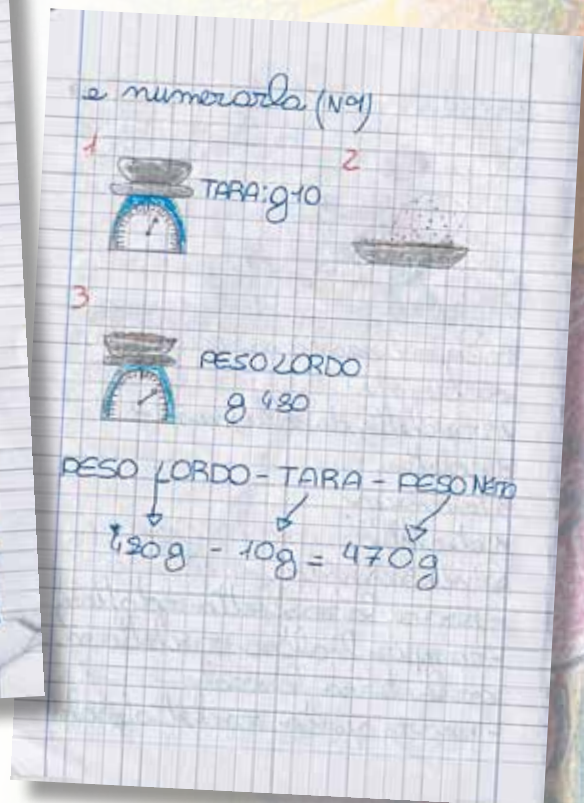 e numerarla (N°1)
1
2
TARA: g 10
3
PESO LORDO
g 480
PESO LORDO - TARA - PESO NETTO
480g - 10g = 470g